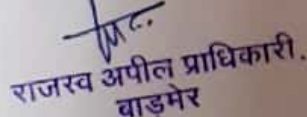 राजस्व अपील प्राधिकारी.
बाड़मेर